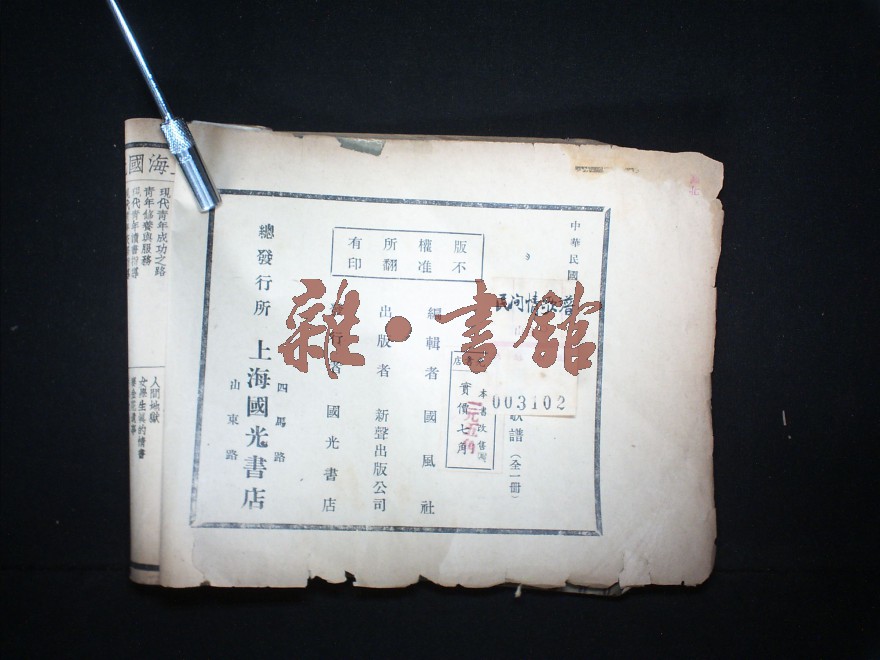 中華民國
民间情歌譜
003102
歌譜（全一册）
本書改售國
實價七角
一元五角
版權所有
不准翻印
編輯者 國風社
出版者 新聲出版公司
發行者 國光書店
總發行所 上海國光書店
四馬路
山東路
雜·書館
海國
現代青年成功之路
青年修養與服務
現代青年讀書指導
人間地獄
女學生真的情書